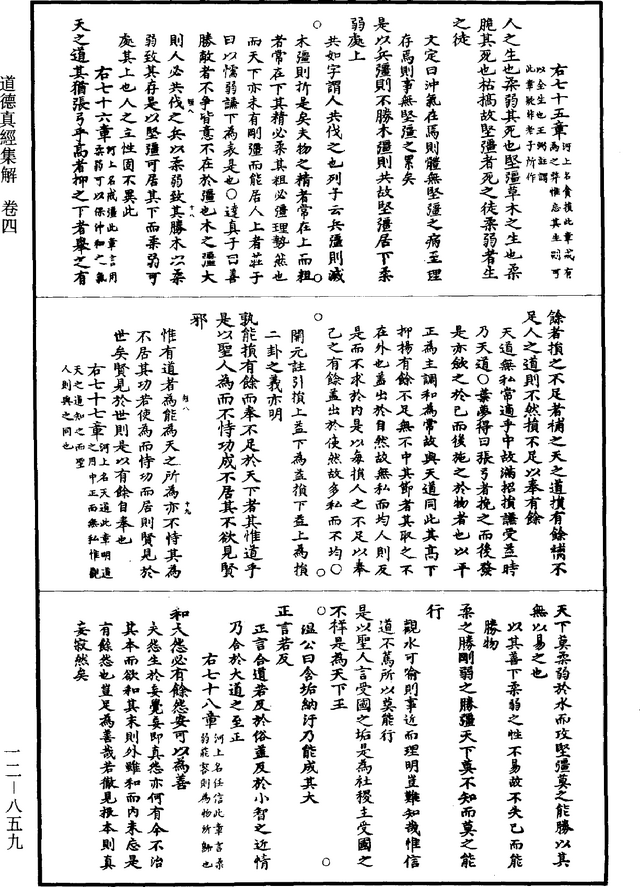 道德真經集解 卷四
一二—八五九
右七十五章河上名貪損此章戒有
以全生也王弼註謂
此章疑非老子所作
人之生也柔弱其死也堅彊草木之生也柔
脆其死也枯槁故堅彊者死之徒柔弱者生
之徒
文定曰沖氣在焉則體無堅彊之病至理
存焉則事無堅彊之累矣
是以兵彊則不勝木彊則共故堅彊居下柔
弱處上
共如字謂人共伐之也列子云兵彊則滅
木彊則折是矣夫物之精者常在上而粗
者常在下其精必柔其粗必彊理勢然也
而天下亦未有剛彊而能居人上者莊子
曰以懦弱謙下為表是也○達真子曰善
勝敵者不爭皆意不在於彊也木之彊大
則人必共伐之兵以柔弱致其勝木以柔
弱致其存是以堅彊可居其下而柔弱可
處其上也人之立性固不異此
右七十六章河上名戒彊此章言用
柔弱可以保沖和之氣
天之道其猶張弓乎高者抑之下者舉之有
餘者損之不足者補之天之道損有餘補不
足人之道則不然損不足以奉有餘
天道無私常適乎中故滿招損謙受益時
乃天道○葉夢得曰張弓者挽之而後發
是亦斂之於己而後施之於物者也以平
正為主調和為常故與天道同此其高下
抑揚有餘不足無不中其節者其取之不
在外也蓋出於自然故無私而均人則反
是而不求於內是以每損人之不足以奉
己之有餘蓋出於使然故多私而不均○
開元註引損上益下為益損下益上為損
二卦之義亦明
孰能損有餘而奉不足於天下者其惟道乎
是以聖人為而不恃功成不居其不欲見賢
邪
惟有道者為能為天之所為亦不恃其為
不居其功若使為而恃功而居則賢見於
世矣賢見於世則是以有餘自奉也
右七十七章河上名天道此章明道
之用中正而無私惟觀
天之道知之而聖
人則與之同也
天下莫柔弱於水而攻堅彊莫之能勝以其
無以易之也
以其善下柔弱之性不易故不失己而能
勝物
柔之勝剛弱之勝彊天下莫不知而莫之能
行
觀水可喻則事近而理明豈難知哉惟信
道不篤所以莫能行
是以聖人言受國之垢是為社稷主受國之
不祥是為天下王
溫公曰含垢納汙乃能成其大
正言若反
正言合道若反於俗蓋反於小智之近情
乃合於大道之至正
右七十八章河上名任信此章言柔
和大怨必有餘怨安可以為善
夫怨生於妄覺妄即真怨亦何有今不治
其本而欲和其末則外雖和而內未忘是
有餘怨也豈足為善哉若徹見根本則真
妄寂然矣